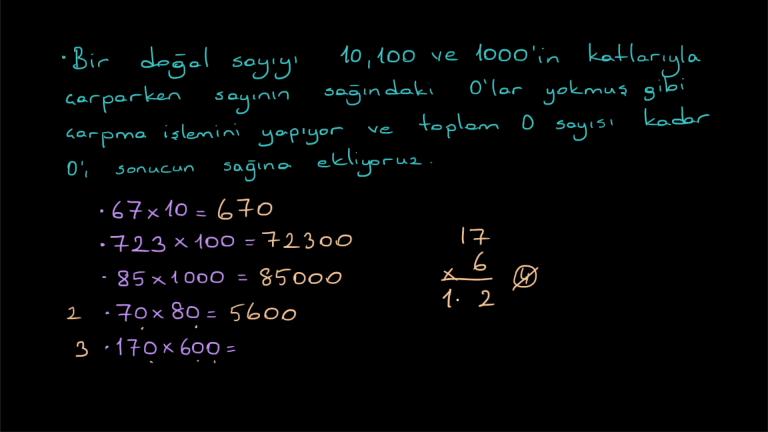 · Bir doğal sayıyı 10,100 ve 1000'in katlarıyla
çarparken sayının sağındaki 0'lar yokmuş gibi
çarpma işlemini yapıyor ve toplam 0 sayısı kadar
0'ı sonucun sağına ekliyoruz.
· 67 x 10 = 670
· 723 x 100 = 72300
· 85 x 1000 = 85000
2 · 70 x 80 = 5600
3 · 170 x 600 =
17
x 6
1. 2 4